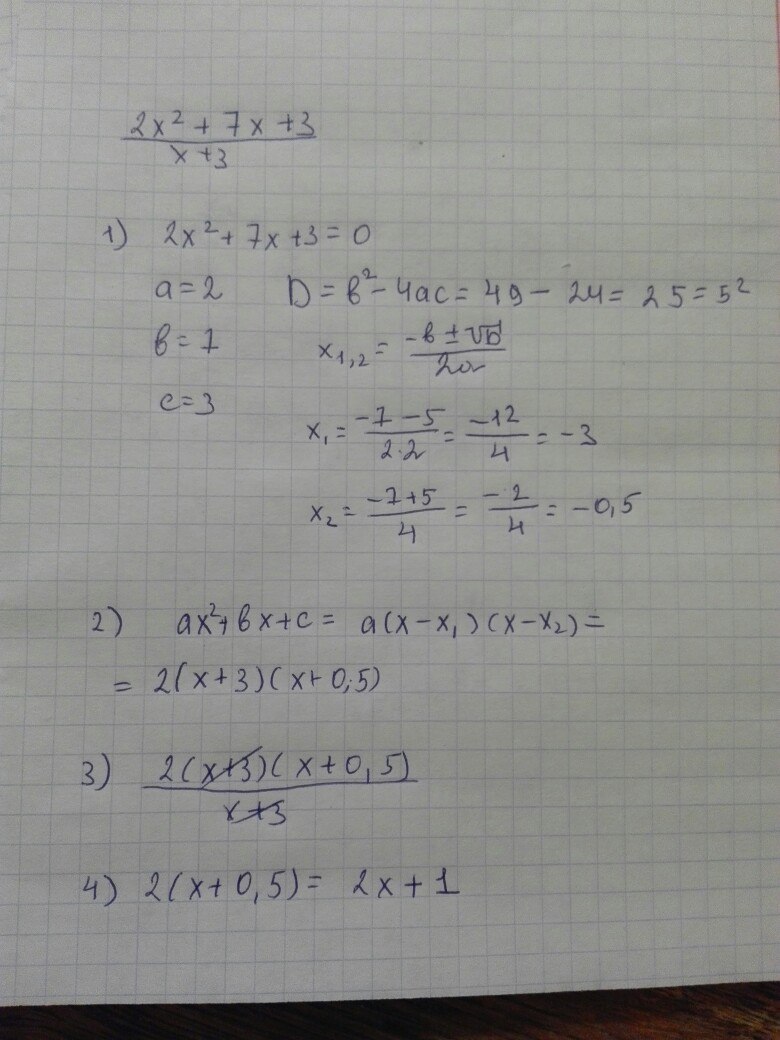 2x² + 7x + 3
x + 3
1) 2x² + 7x + 3 = 0
a = 2 D = b² - 4ac = 49 - 24 = 25 = 5²
b = 7 x₁,₂ = (-b ± √D) / 2a
c = 3
x₁ = (-7 - 5) / 2·2 = -12 / 4 = -3
x₂ = (-7 + 5) / 4 = -2 / 4 = -0,5
2) ax² + bx + c = a(x - x₁)(x - x₂) =
= 2(x + 3)(x + 0,5)
3) 2(x+3)(x + 0,5)
x+3
4) 2(x + 0,5) = 2x + 1